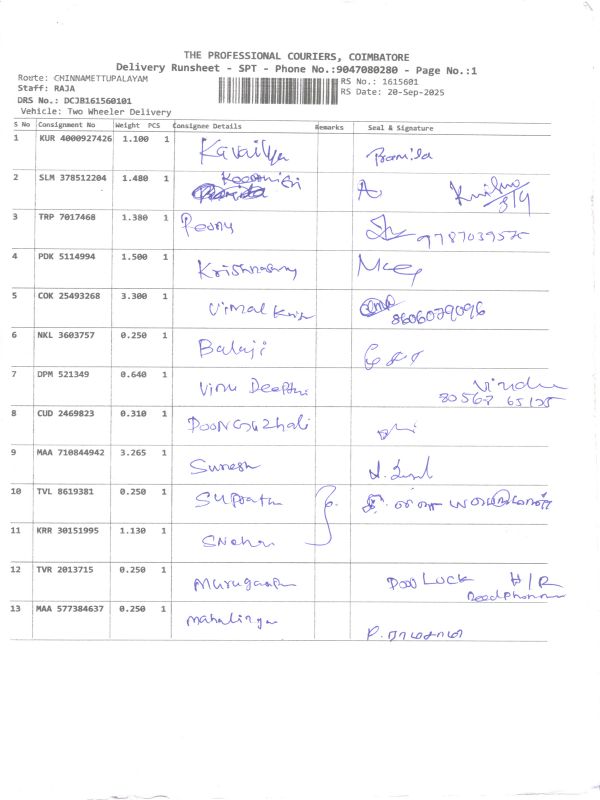 THE PROFESSIONAL COURIERS, COIMBATORE
Delivery Runsheet - SPT - Phone No.:9047080280 - Page No.:1
Route: CHINNAMETTUPALAYAM
Staff: RAJA
DRS No.: DCJB161560101
Vehicle: Two Wheeler Delivery
RS No.: 1615601
RS Date: 20-Sep-2025
S No Consignment No Weight PCS Consignee Details Remarks Seal & Signature
1 KUR 4000927426 1.100 1 Kavailya Pramila
2 SLM 378512204 1.480 1
3 TRP 7017468 1.380 1 9787039575
4 PDK 5114994 1.500 1 Krishnasamy
5 COK 25493268 3.300 1 Vimal 8606079096
6 NKL 3603757 0.250 1 Balaji
7 DPM 521349 0.640 1 Vinu Deepthi
80567 65125
8 CUD 2469823 0.310 1 Poonguzhali
9 MAA 710844942 3.265 1 Suresh
10 TVL 8619381 0.250 1
11 KRR 30151995 1.130 1 Sneha
12 TVR 2013715 0.250 1 Door Lock
13 MAA 577384637 0.250 1